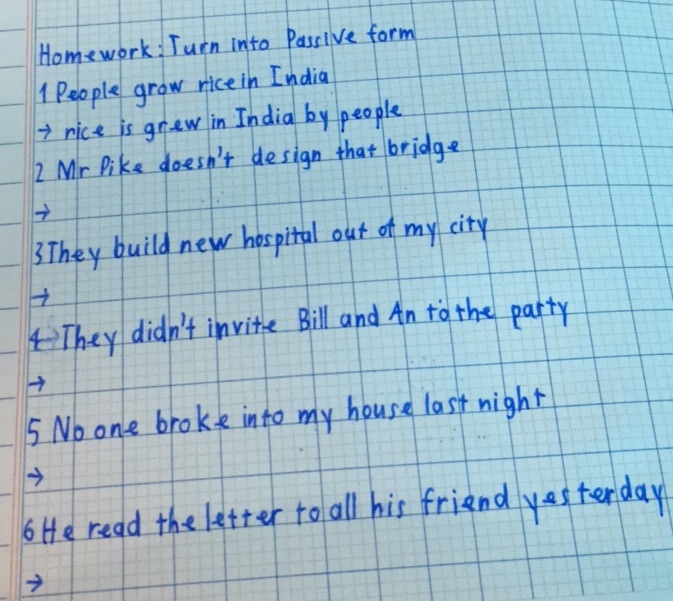 Homework: Turn into Passive form
1 People grow rice in India
→ rice is grew in India by people
2 Mr Pike doesn't design that bridge
→
3 They build new hospital out of my city
→
4 They didn't invite Bill and An to the party
→
5 No one broke into my house last night
→
6 He read the letter to all his friend yesterday
→